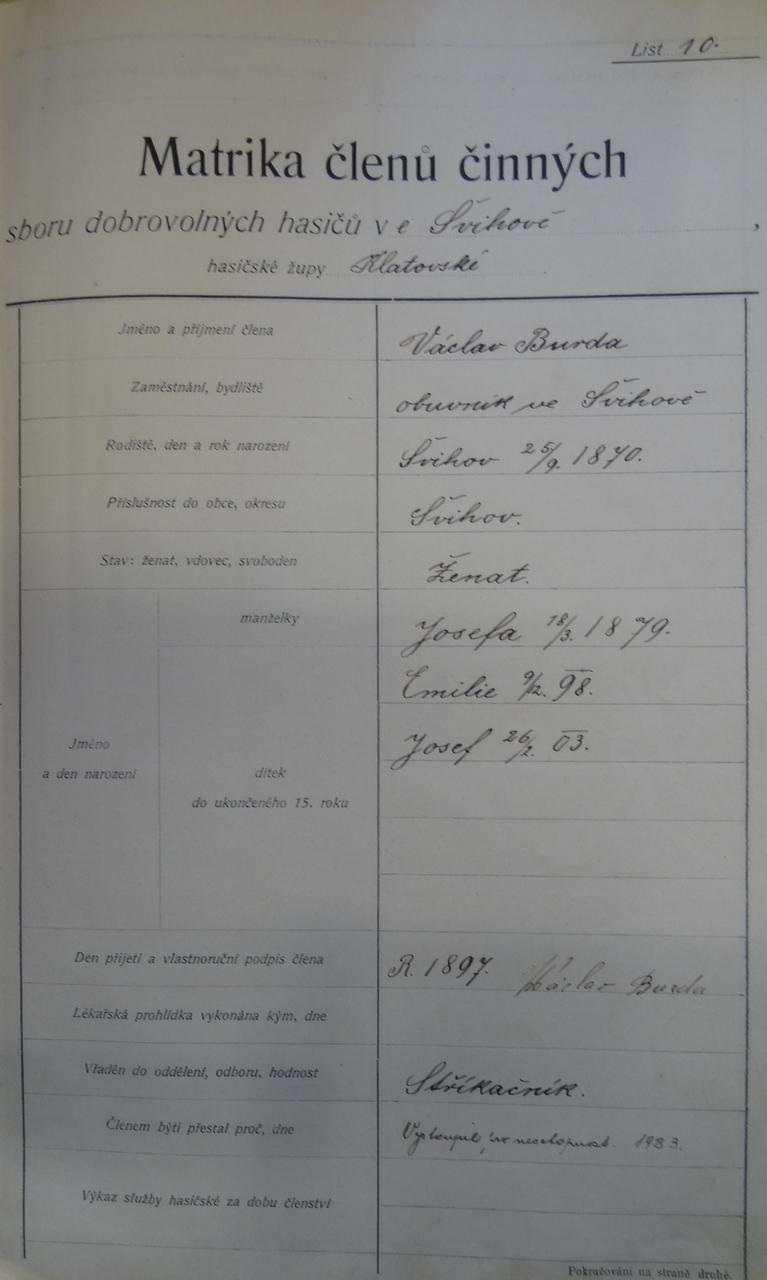 List 10.
Matrika členů činných
sboru dobrovolných hasičů v e Švihově,
hasičské župy Klatovské
Jméno a příjmení člena Václav Burda
Zaměstnání, bydliště obuvník ve Švihově
Rodiště, den a rok narození Švihov 25/9. 1870.
Příslušnost do obce, okresu Švihov.
Stav: ženat, vdovec, svoboden Ženat.
manželky Josefa 18/3. 1879.
Emilie 9/12. 98.
Josef 26/2. 03.
Jméno
a den narození
dítek
do ukončeného 15. roku
Den přijetí a vlastnoruční podpis člena R. 1897. Václav Burda
Lékařská prohlídka vykonána kým, dne
Vřaděn do oddělení, odboru, hodnost Stříkačník.
Členem býti přestal proč, dne Vystoupil neschopnost. 1933.
Výkaz služby hasičské za dobu členství
Pokračování na straně druhé.